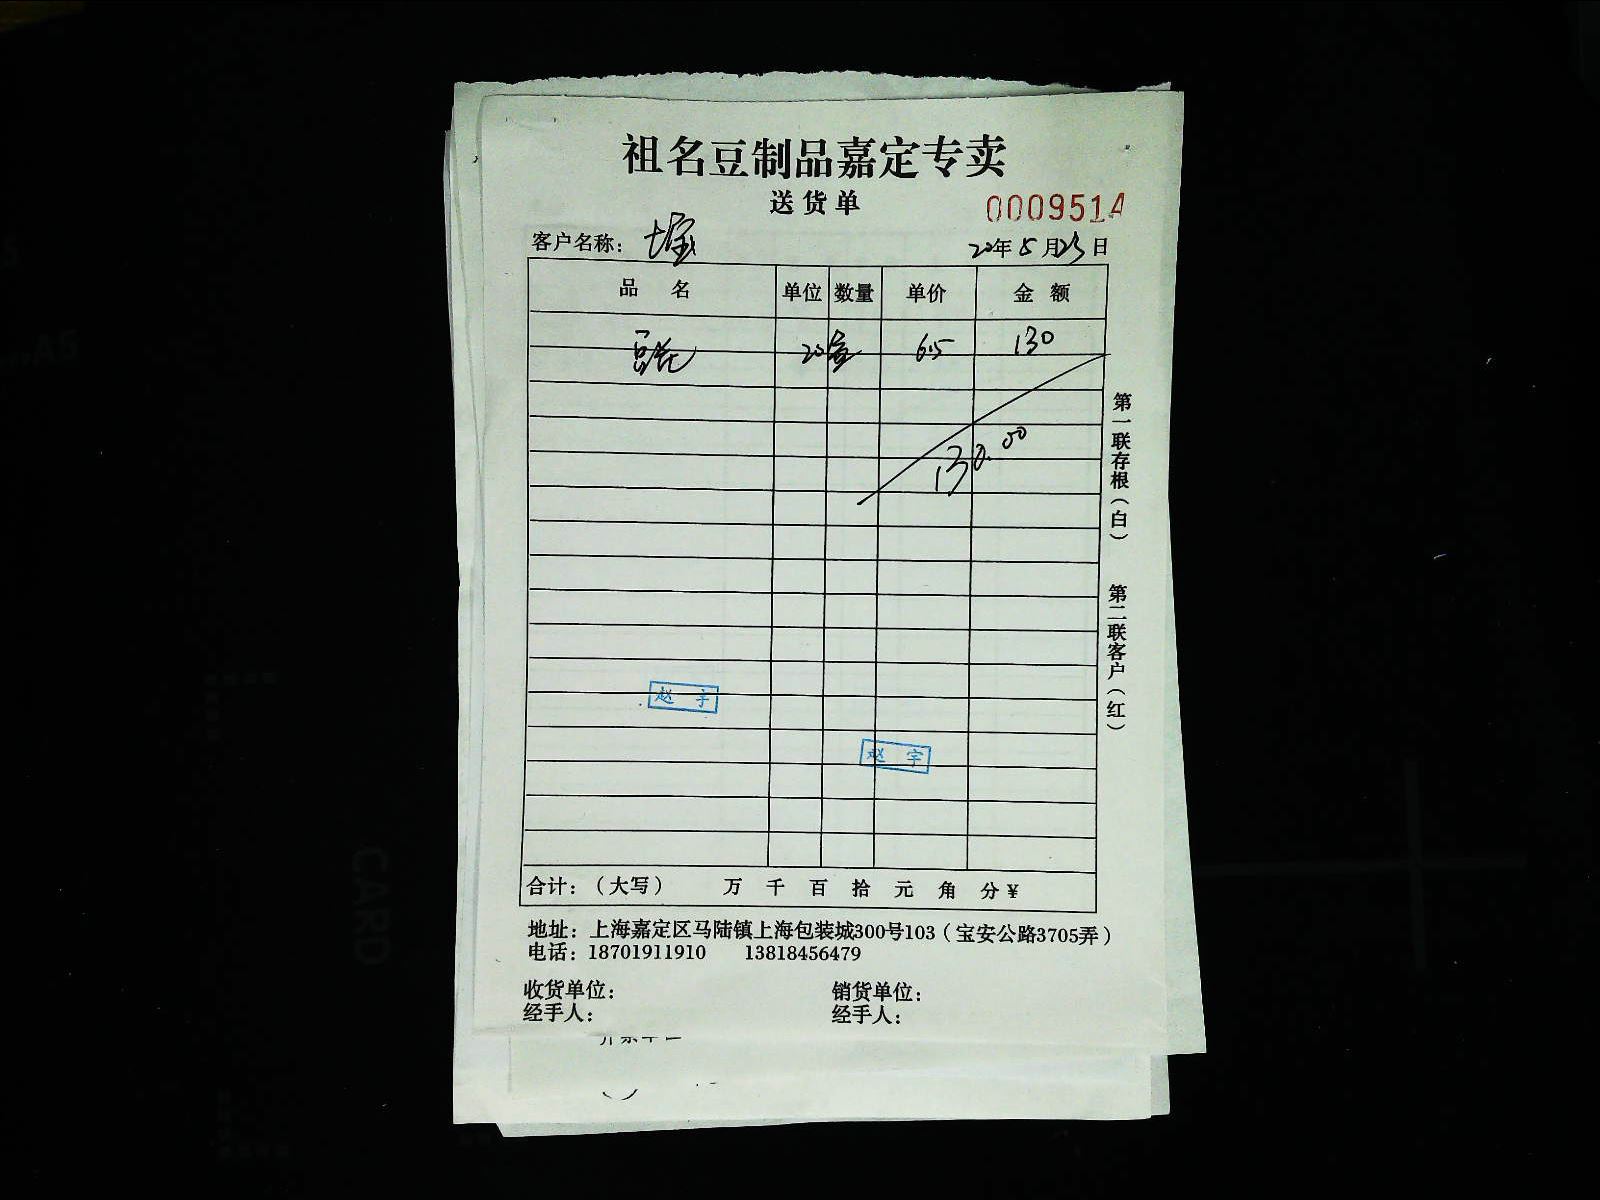 祖名豆制品嘉定专卖
送货单
0009514
客户名称:
20年5月23日
品 名 单位 数量 单价 金 额
20盒 6.5 130
130.00
第一联存根(白) 第二联客户(红)
赵 宇
赵 宇
合计:(大写) 万 千 百 拾 元 角 分 ¥
地址:上海嘉定区马陆镇上海包装城300号103(宝安公路3705弄)
电话:18701911910 13818456479
收货单位: 销货单位:
经手人: 经手人: